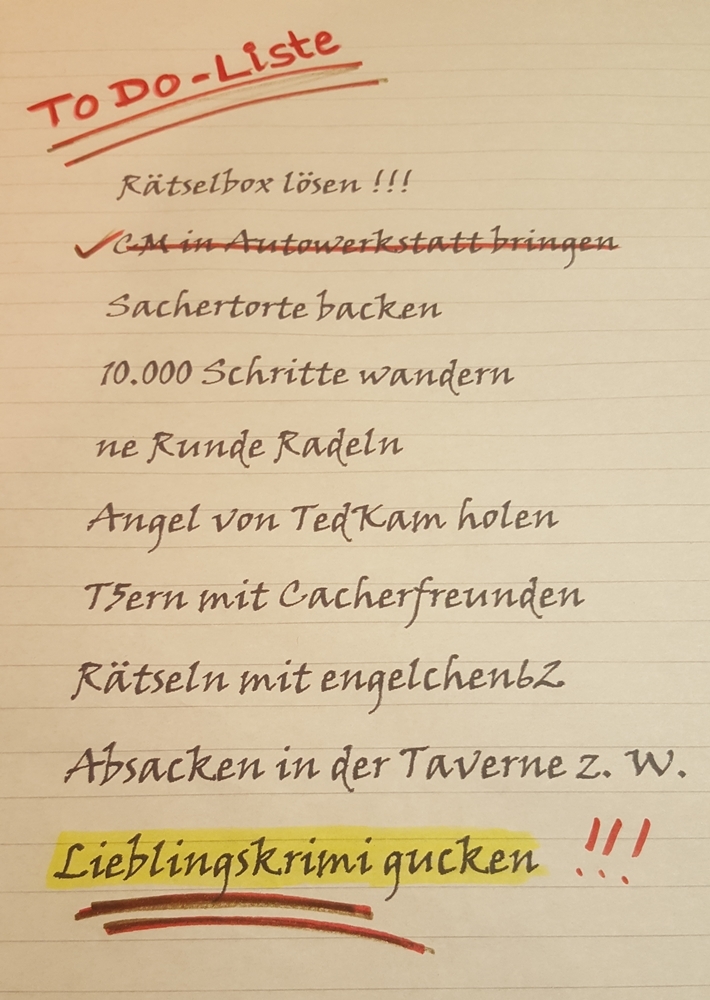 To Do-Liste
Rätselbox lösen !!!
CM in Autowerkstatt bringen
Sachertorte backen
10.000 Schritte wandern
ne Runde Radeln
Angel von TedKam holen
T5ern mit Cacherfreunden
Rätseln mit engelchen62
Absacken in der Taverne z. W.
Lieblingskrimi gucken !!!